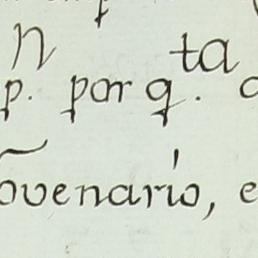 n ta
p. por q.
ovenario, e